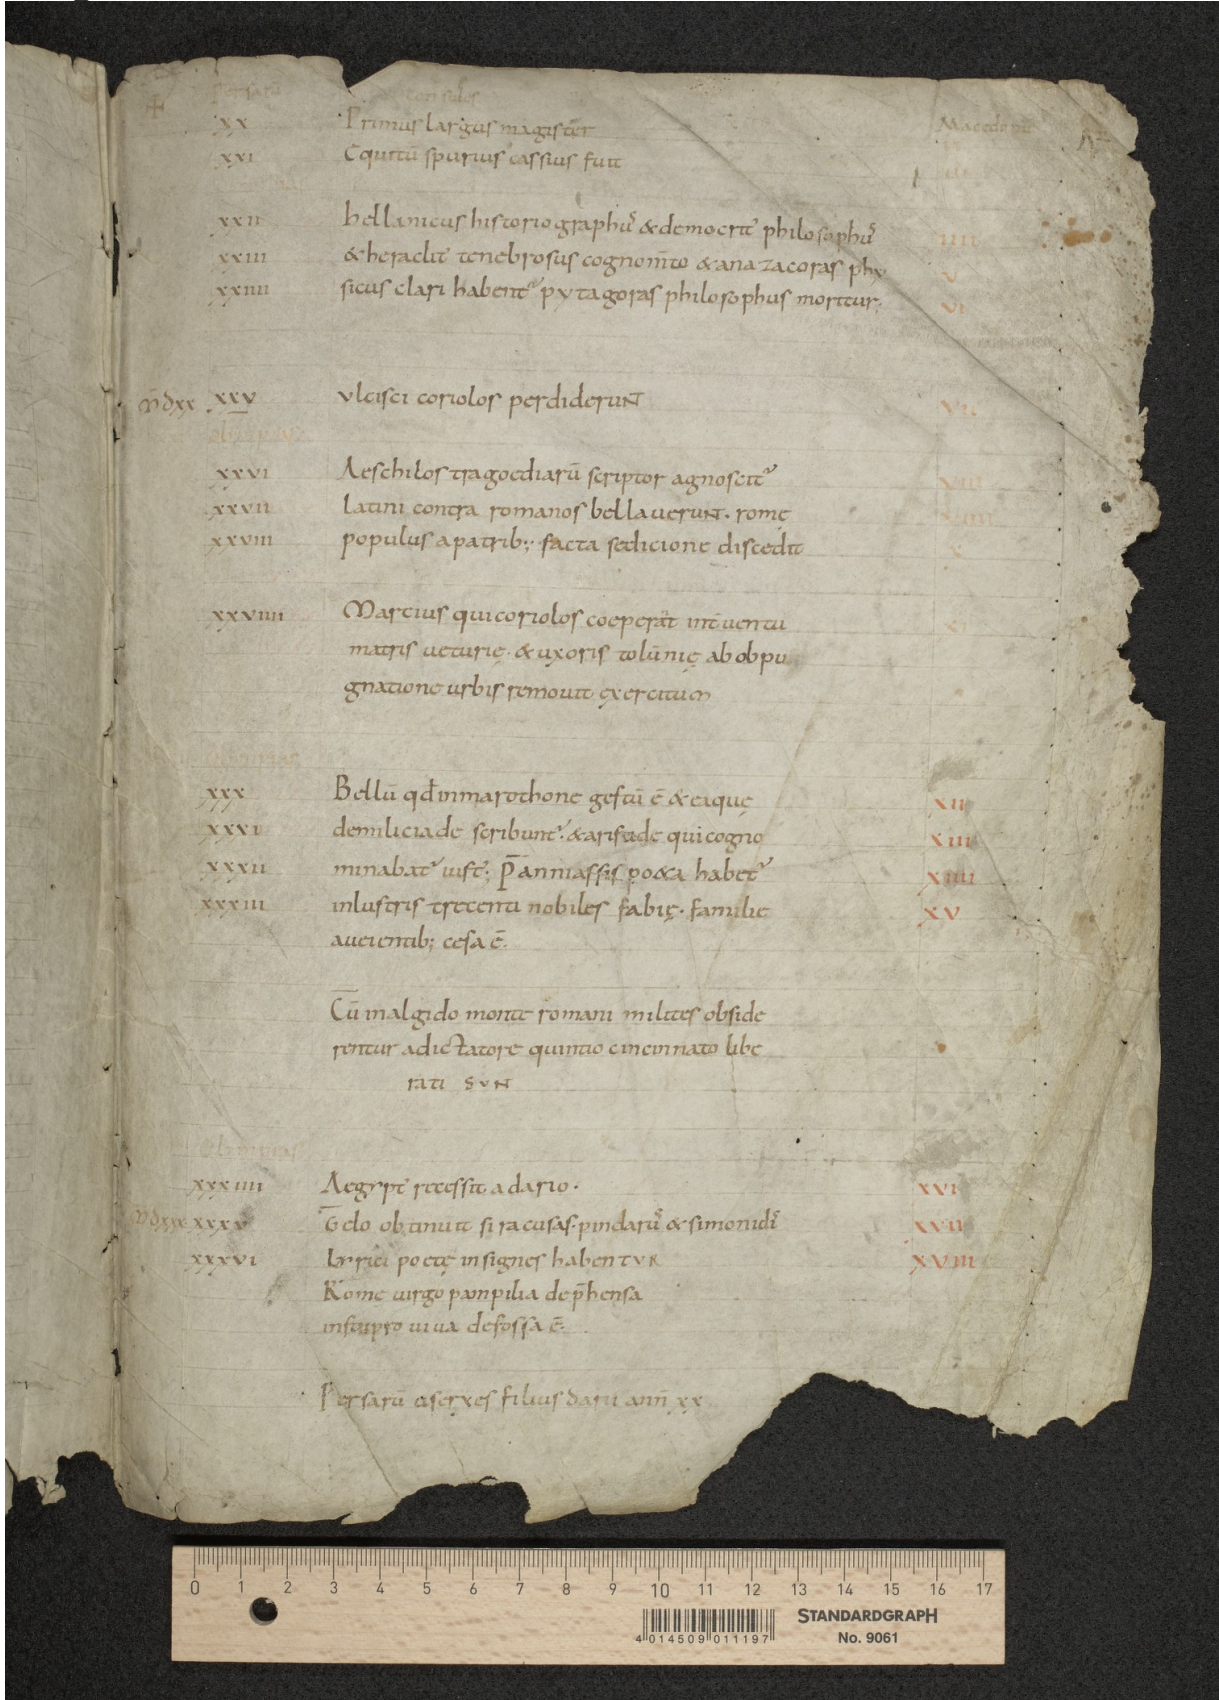 Persarū consules
xx Primus largus magister Macedonū
xxi Equitū spurius cassius fuit iii
xxii hellanicus historiographus᷒ & democrit᷒ philosophus᷒ iiii
xxiii & heraclit᷒ tenebrosus cognom̄to & anazacoras phy v
xxiiii sicus clari habent᷒ pytagoras philosophus moritur; vi
xxv ulcisci coriolos perdiderunt vii
olimpias
xxvi Aeschilos tragoediarū scriptor agnoscit᷒ viii
xxvii latini contra romanos bellauerunt· romę viiii
xxviii populus a patrib;· facta sedicione discedit x
xxviiii Marcius qui coriolos coeperat int̄uentu xi
matris ueturię· & uxoris uolūnię ab obpu
gnatione urbis remouit exercitum
xxx Bellū qđ in marothone gestū ē & ea quę xii
xxxi de miliciade scribunt᷒· & aristide qui cogno xiii
xxxii minabat᷒ iust᷒; P̄anniassis po&a habet᷒ xiiii
xxxiii inlustris trecenti nobiles fabię· familie xv
aueientib; cesa ē·
Cū in algido monte romani milites obside
rentur a dictatore quintio cincinnato libe
rati sunt
Olimpias
xxxiiii Aegypt᷒ recessit a dario· xvi
xxxv Gelo obtinuit siracusas· pindarus᷒ & simonidis᷒ xvii
xxxvi Lyrici poetę insignes habentur xviii
Rome uirgo pompilia dep̄hensa
in stupro uiua defossa ē·
Persarū xerxes filius darii ann̄ xx
0 1 2 3 4 5 6 7 8 9 10 11 12 13 14 15 16 17
STANDARDGRAPH
4 014509 011197
No. 9061